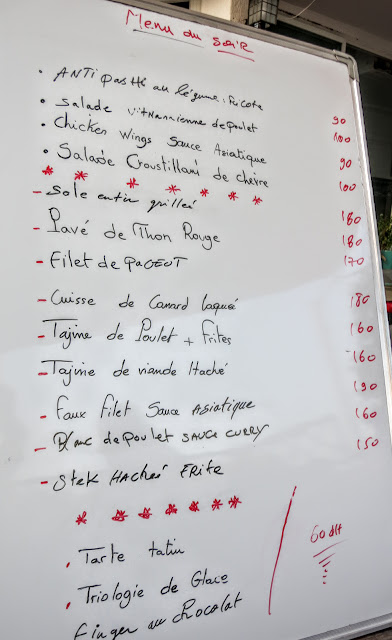 Menu du soir
• Antipasti au légume : Ricota 90
• Salade Vitnamienne de poulet 100
• Chicken Wings Sauce Asiatique 90
• Salade Croustillant de chèvre 100
* * * * * * *
- Sole entier grilleé 180
- Pavé de Thon Rouge 180
- Filet de PAGEOT 170
- Cuisse de Canard laqueé 180
- Tajine de Poulet + frites 160
- Tajine de viande Haché 160
- Faux Filet Sauce Asiatique 190
- Blanc de poulet SAUCE CURRY 160
- Stek HACheé FRite 150
* * * * * * *
• Tarte tatin
• Triologie de Glace
Finger au chocolat
60 dh